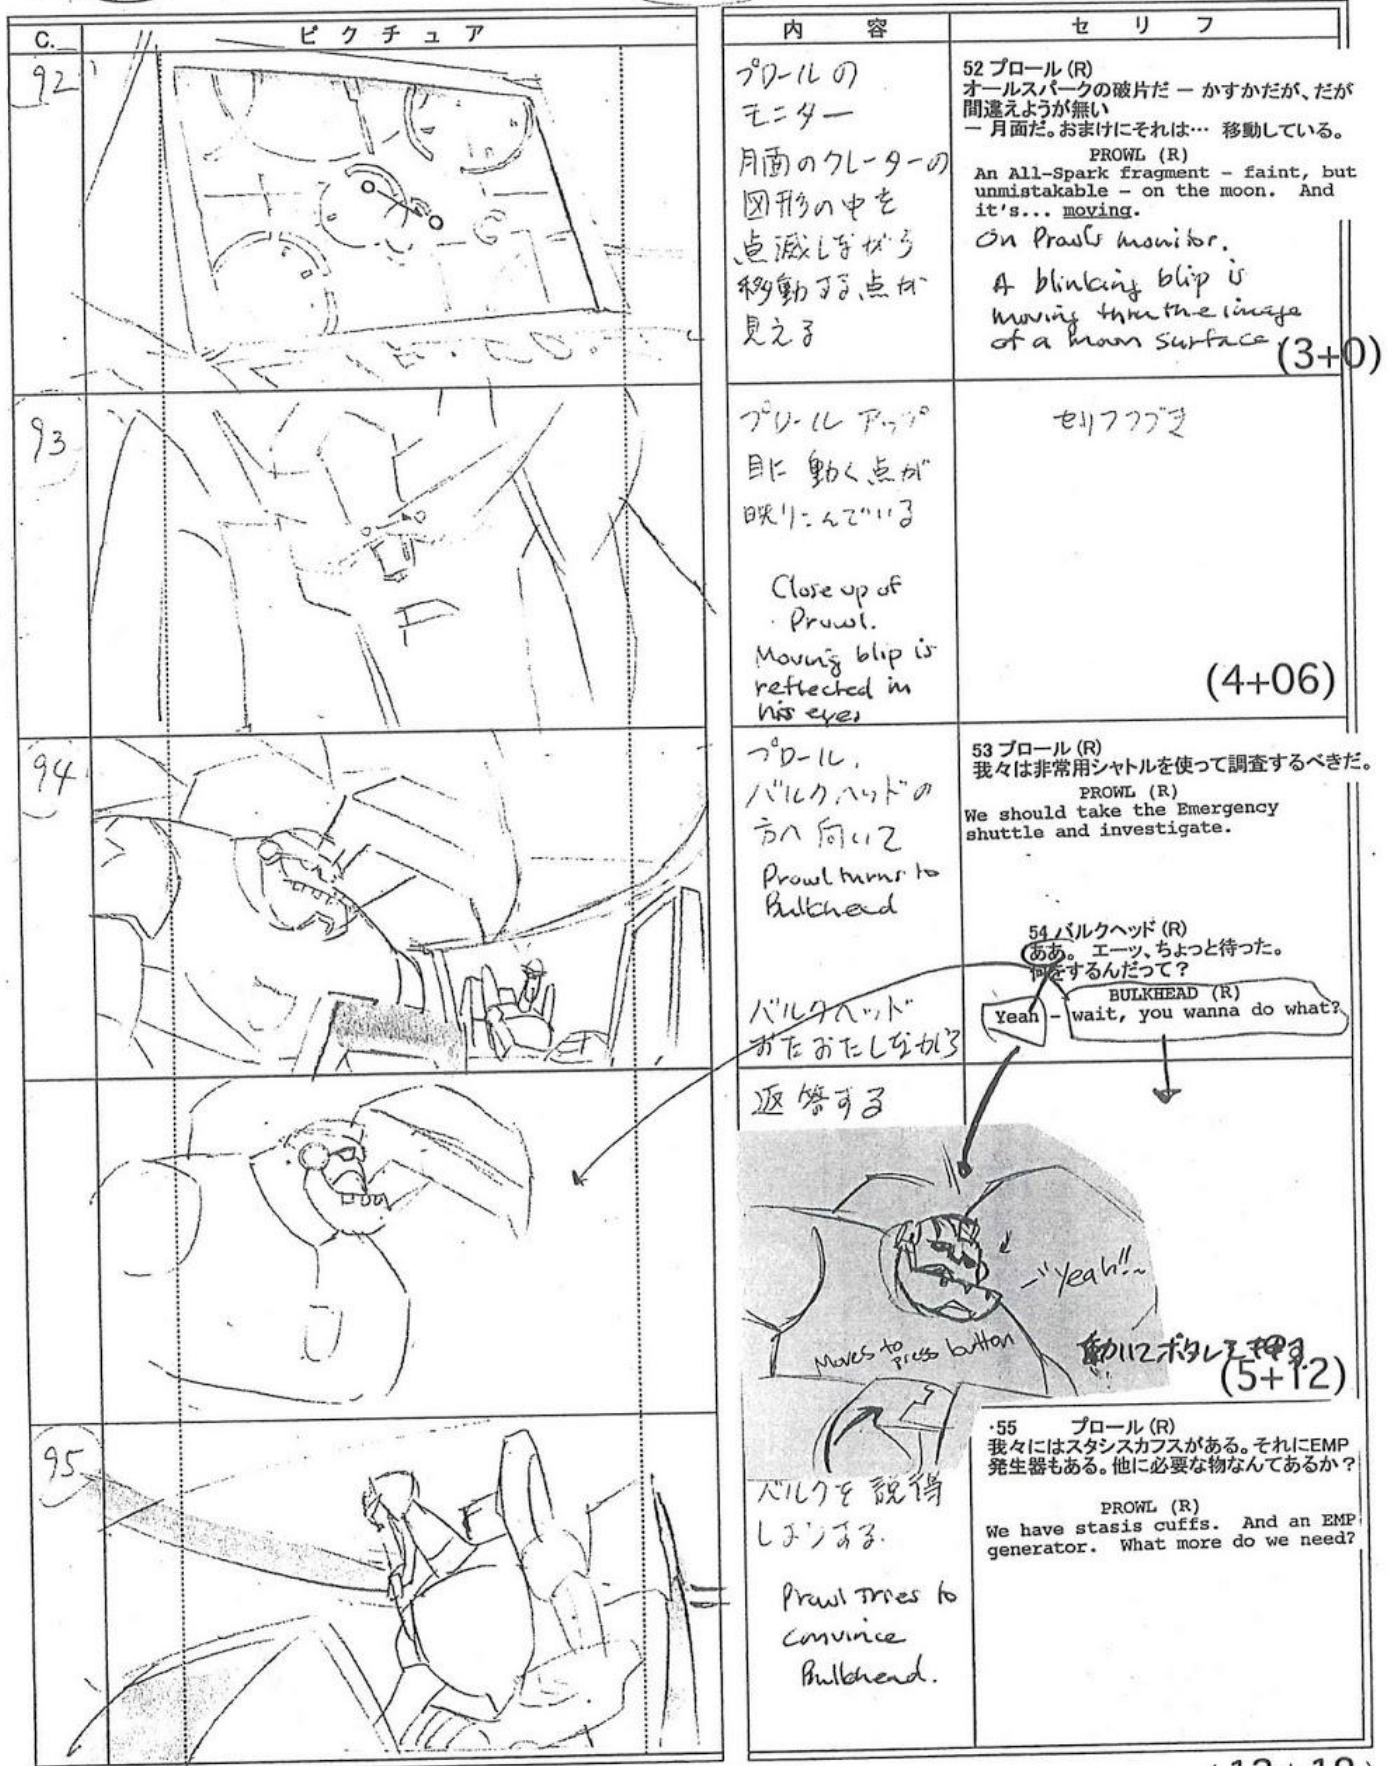 C.
ピクチュア
内容
セリフ
92
プロールの
モニター
月面のクレーターの
図形の中を
点滅しながら
移動する点が
見える
52 プロール (R)
オールスパークの破片だ － かすかだが、だが
間違えようが無い
－ 月面だ。おまけにそれは… 移動している。
PROWL (R)
An All-Spark fragment - faint, but
unmistakable - on the moon. And
it's... moving.
On Prowl's monitor.
A blinking blip is
moving thru the image
of a moon surface
(3+0)
93
プロール アップ
目に 動く点が
映りこんでいる
Close up of
Prowl.
Moving blip is
reflected in
his eyes
セリフつづき
(4+06)
94
プロール、
バルクヘッドの
方へ 向いて
Prowl turns to
Bulkhead
バルクヘッド
おたおたしながら
返答する
53 プロール (R)
我々は非常用シャトルを使って調査するべきだ。
PROWL (R)
We should take the Emergency
shuttle and investigate.
54 バルクヘッド (R)
ああ。 エーッ、ちょっと待った。
何をするんだって？
BULKHEAD (R)
Yeah - wait, you wanna do what?
"Yeah!!~
Moves to press button
動いてボタンを押す
(5+12)
95
バルクを 説得
しようとする.
Prowl tries to
convince
Bulkhead.
55 プロール (R)
我々にはスタシスカフスがある。それにEMP
発生器もある。他に必要な物なんてあるか？
PROWL (R)
We have stasis cuffs. And an EMP
generator. What more do we need?